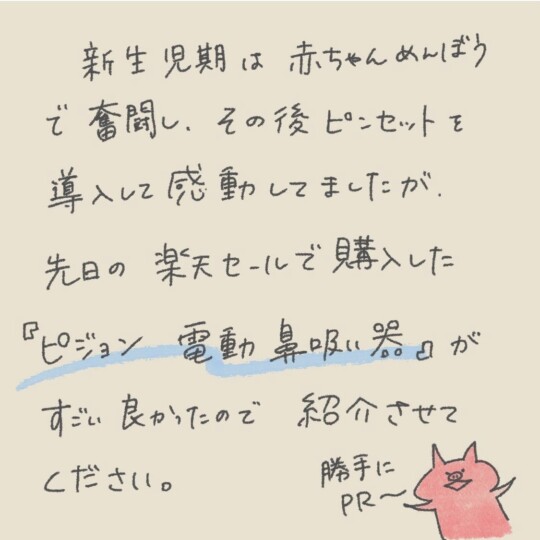 新生児期は 赤ちゃんめんぼう
で奮闘し、その後ピンセットを
導入して感動してましたが、
先日の楽天セールで購入した
『ピジョン 電動鼻吸い器』が
すごい良かったので 紹介させて
ください。
勝手に
PR〜